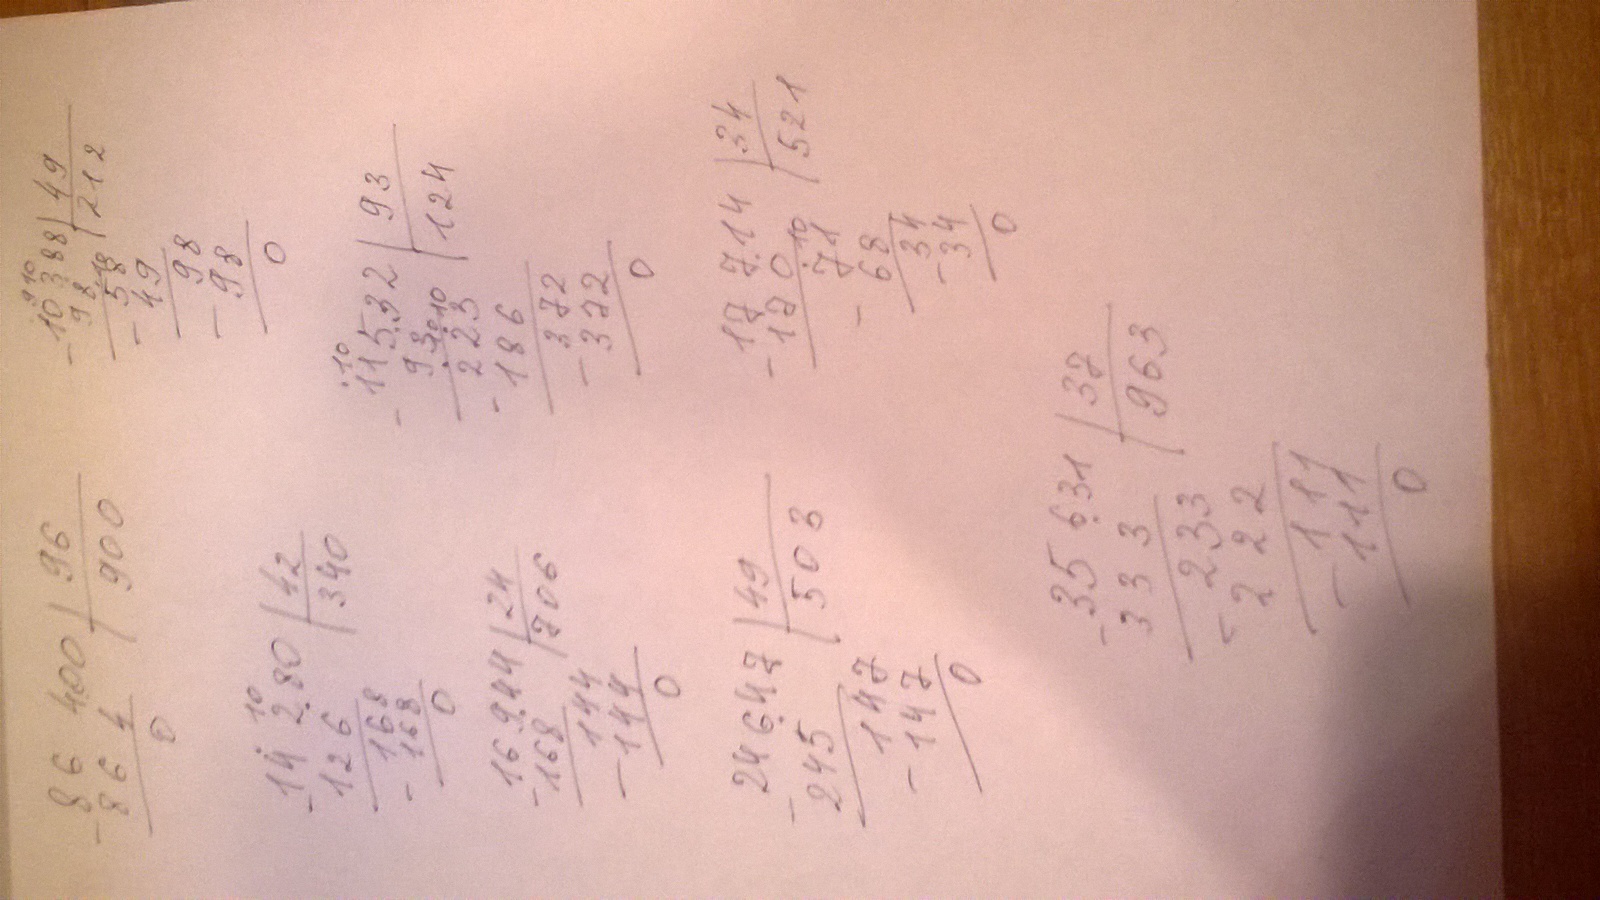 86 400 | 96
- 864 | 900
0
14 280 | 42
- 126 | 340
168
- 168
0
16 944 | 24
- 168 | 706
144
- 144
0
24647 | 49
- 245 | 503
147
- 147
0
10388 | 49
- 98 | 212
58
- 49
98
- 98
0
11532 | 93
- 93 | 124
223
- 186
372
- 372
0
17 714 | 34
- 170 | 521
71
- 68
34
- 34
0
35 631 | 37
- 333 | 963
233
- 222
111
- 111
0